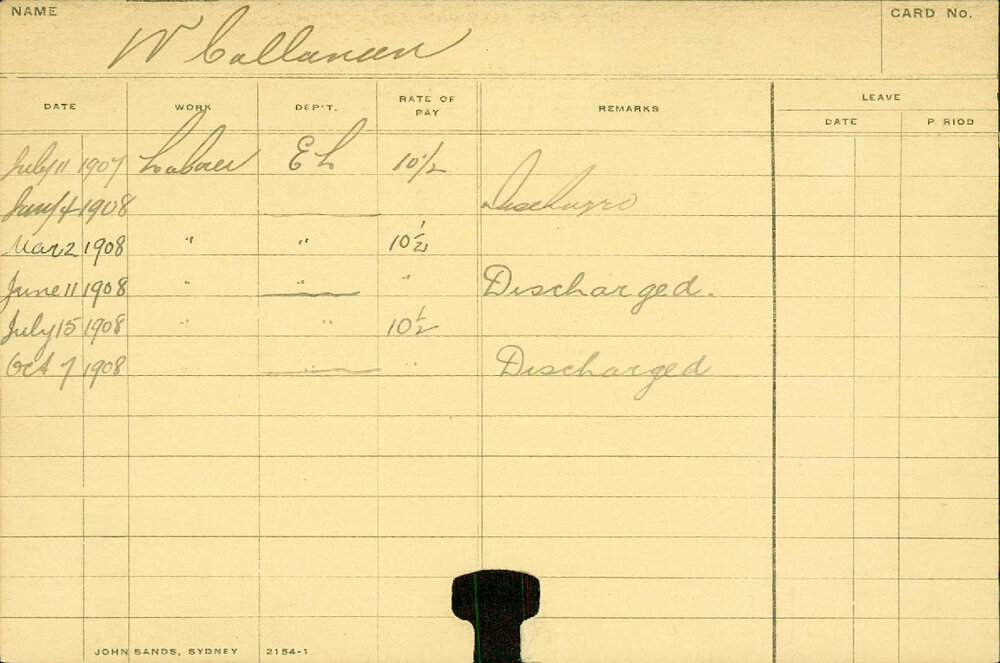 NAME W Callanan CARD No.
DATE WORK DEP'T. RATE OF PAY REMARKS LEAVE
DATE P RIOD
July 11 1907 Laborer E L 10 1/2
Jany 4 1908 Discharged
Mar 2 1908 " " 10 1/2
June 11 1908 " " Discharged.
July 15 1908 " " 10 1/2
Oct 7 1908 " " Discharged
JOHN SANDS, SYDNEY 2154-1